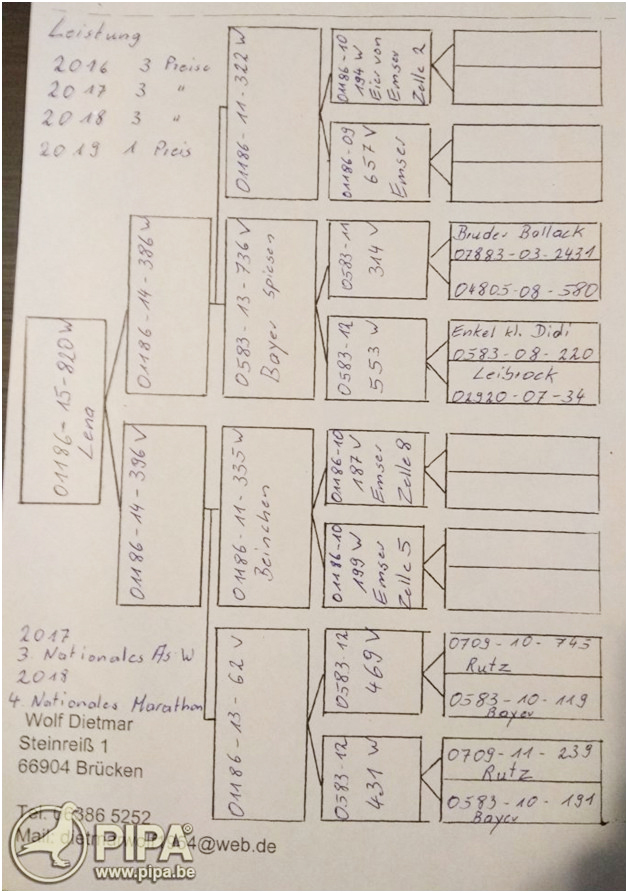 Leistung
2016 3 Preise
2017 3 "
2018 3 "
2019 1 Preis
01186-15-820W
Lena
01186-14-386W
01186-14-396V
01186-11-322W
0583-13-736V
Bayer Spiesen
01186-11-335W
Beinchen
01186-13-62V
01186-10
194W
Eier von
Emser
Zelle 2
01186-09
657V
Emser
0583-11
314V
0583-12
553W
01186-10
187V
Emser
Zelle 8
01186-10
199W
Emser
Zelle 5
0583-12
469V
0583-12
431W
Bruder Ballack
07883-03-2431
04805-08-580
Enkel kl. Didi
0583-08-220
Leibrock
02920-07-34
0709-10-745
Rutz
0583-10-119
Bayer
0709-11-239
Rutz
0583-10-191
Bayer
2017
3. Nationales As-W
2018
4. Nationales Marathon
Wolf Dietmar
Steinreiß 1
66904 Brücken
Tel. 06386 5252
Mail: @web.de
PIPA
www.pipa.be